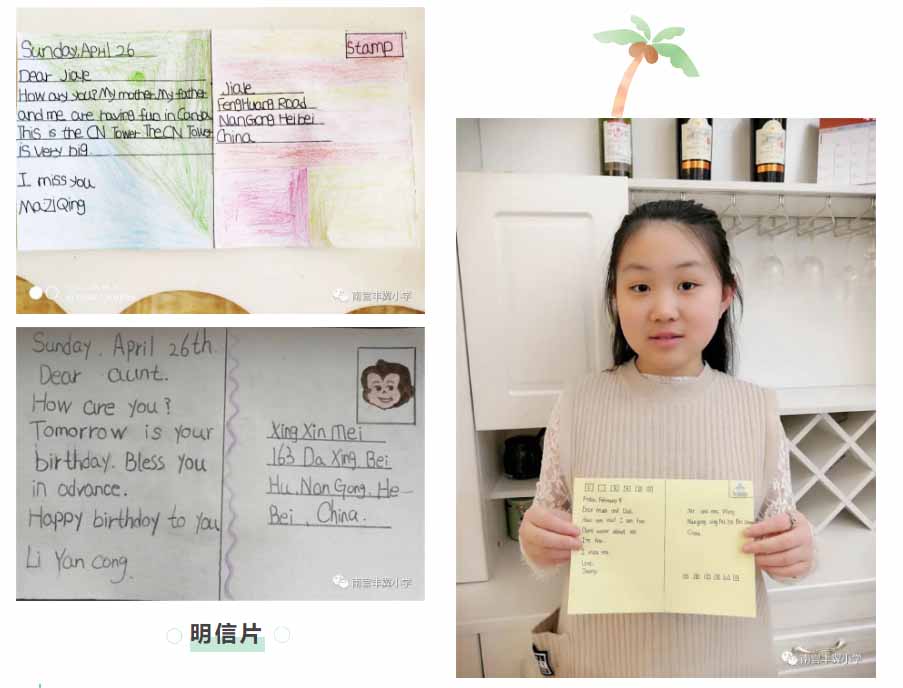 Sunday, April 26
Dear Jiaye
How are you? My mother, My father
and me are having fun in Canda
This is the CN Tower The CN Tower
is very big.
I miss you
Ma ZiQing
Stamp
Jiaye
FengHuang Road
NanGong HeiBei
China
南宫丰翼小学
Sunday, April 26th.
Dear aunt.
How are you?
Tomorrow is your
birthday. Bless you
in advance.
Happy birthday to you
Li Yan cong.
Xing Xin Mei
163 Da Xing, Bei
Hu, Nan Gong, He
Bei, China.
南宫丰翼小学
明信片
Friday, February
Dear Mum and Dad,
How are you? I am fine
Don't worry about me
I'm fine.
I miss you.
Love,
Mr and Mrs. Wang
China
南宫丰翼小学